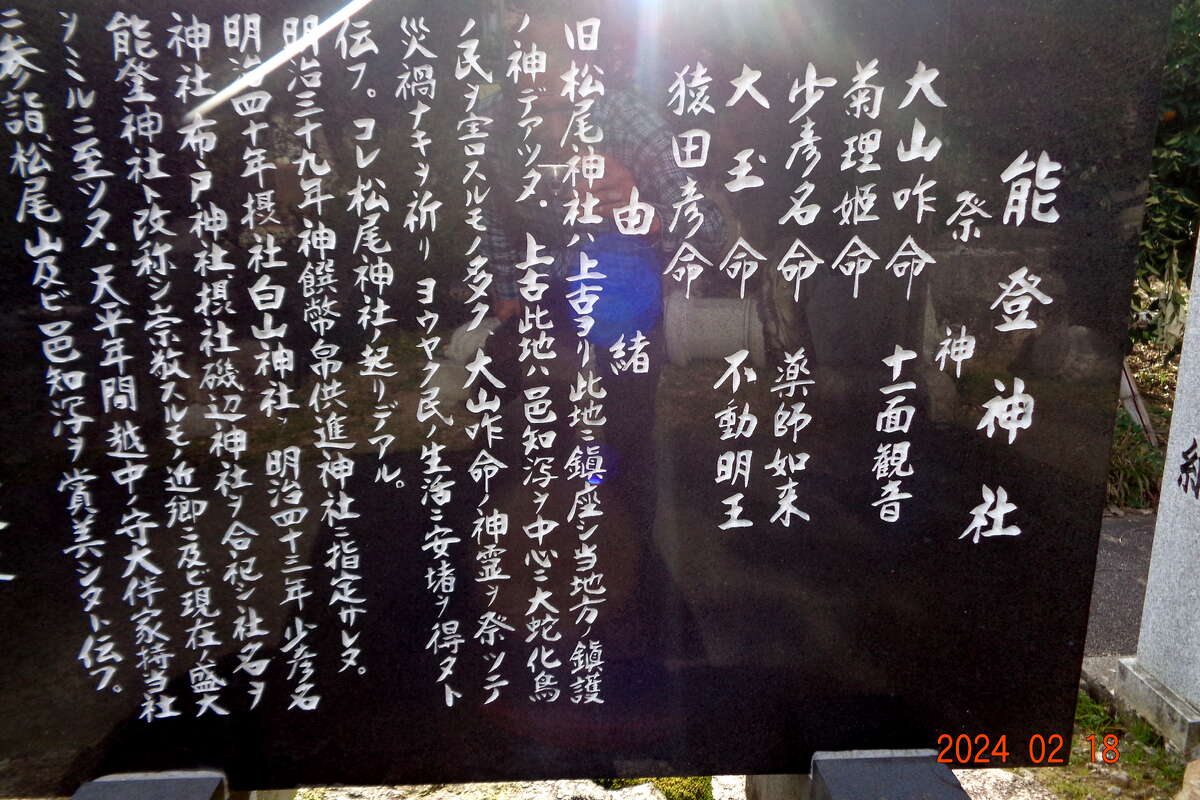 能登神社
祭神
大山咋命 十一面観音
菊理姫命
少彦名命 薬師如来
大玉命 不動明王
猿田彦命
由緒
旧松尾神社ハ上古ヨリ此地ニ鎮座シ当地方ノ鎮護
ノ神デアツタ.上古此地ハ邑知泻ヲ中心ニ大蛇化鳥
ノ民ヲ害スルモノ多ク大山咋命ノ神霊ヲ祭ツテ
災禍ナキヲ祈リヨウヤク民ノ生活ニ安堵ヲ得タト
伝フ。コレ松尾神社ノ起リデアル。
明治三十九年神饌幣帛供進神社ニ指定サレタ。
明治四十年摂社白山神社ヲ明治四十三年少彦名
神社布戸神社摂社磯辺神社ヲ合祀シ社名ヲ
能登神社ト改称シ崇敬スルモノ近郷ニ及ビ現在ノ盛大
ヲミルニ至ツタ.天平年間越中ノ守大伴家持当社
ニ参詣、松尾山及ビ邑知泻ヲ賞美シタト伝フ。
2024 02 18